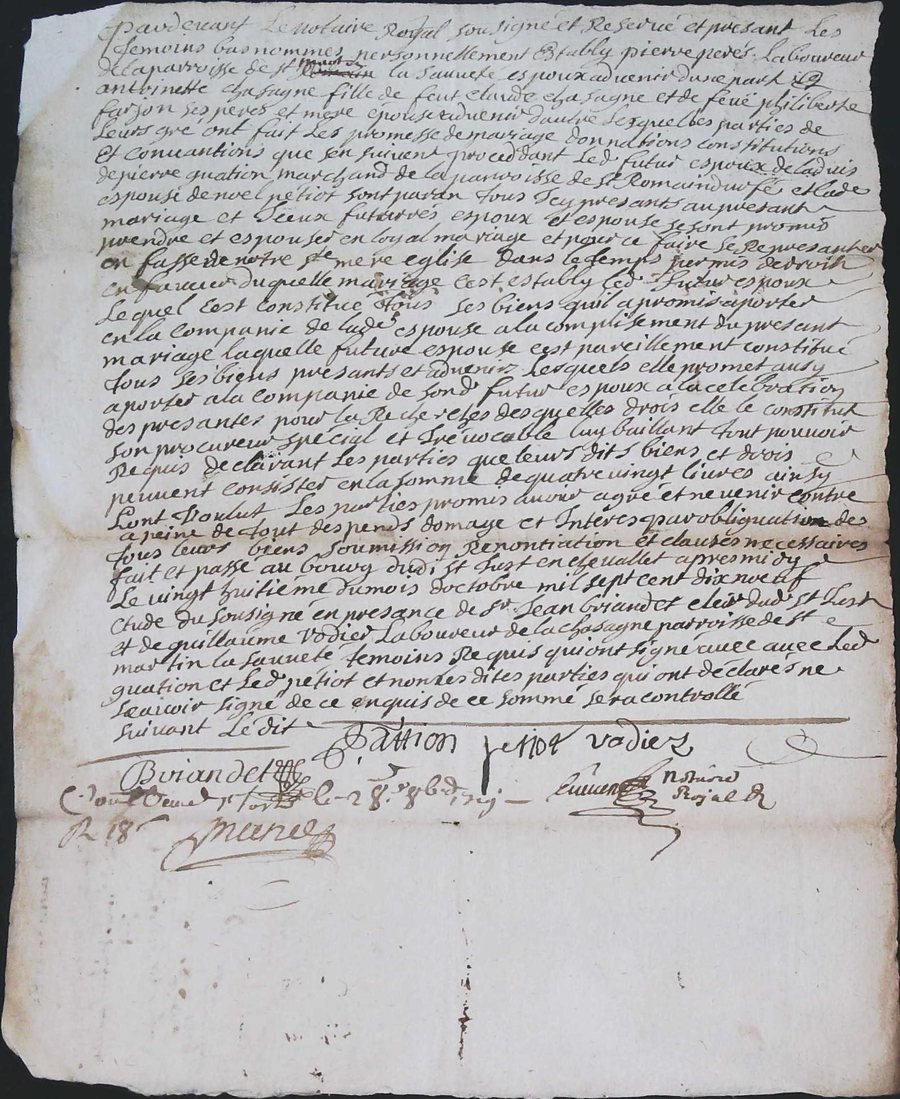 Pardevant Le notaire Royal sousigné et Reservé et presant Les
Temoins bas nommes personnellement Estably pierre peres Laboureur
de la parroisse de st martin la sauveté espoux advenir dune part et
antoinette chasagne fille de feut claude chasagne et de feuë philiberte
farjon ses peres et mere épouse advenir dautre Lesquelles parties de
Leurs gre ont fait Les promesse de mariage donnations constitutions
et convantions que sen suivent proceddant Led futur espoux de ladvis
de pierre quation marchand de la parroisse de st Romain durfé et lade
espouse de noel petiot sont paran tous Icy presants au presant
mariage et Iceux futurres espoux et espouse se sont promis
prendre et espouser en loyal mariage et pour ce faire se Represanter
en fasse de notre ste mere eglise dans le temps permis de droit
en faveur du quelle mariage c'est estably led futur espoux
Lequel c'est constitué tous ses biens quil a promis aporter
en la Companie de lade espouse a la complisement du presant
mariage laquelle future espouse c'est pareillement constitué
tous ses biens presants et advenirs lesquels elle promet ausy
aporter a la companie de sond futur espoux a la celebration
des presantes pour la Recherches des quelles drois elle le constitut
son procureur special et Irevocable luy baillant tout pouvoir
Requis declairant Les parties que leurs dits biens et drois
peuvent consister en la somme de quatre vingt livres ainsy
Lont Voulut Les parties promis avoir agré et ne venir contre
a peine de tout despends domage et Interes par obliguation des
tous leurs biens soumission Renontiation et clauses necessaires
fait et passé au bourg dudit st Just en chevallet apres midy
Le vingt huitieme du mois doctobre mil sept cent dix neuf
etude du sousigné en presance de sr Jean briandet clerc dud st Just
et de guillaume vodier Laboureur de la chasagne parroisse de st
martin la sauveté temoins Requis qui ont signé avec avec Led
quation et led petiot et non les dites parties qui ont déclares ne
scavoir signé de ce enquis de ce sommé sera controllé
suivant Lédit
Pattion petiot vodiez
Briandet
notaire
Royal R
le 28e 8bre 1719
R 18s